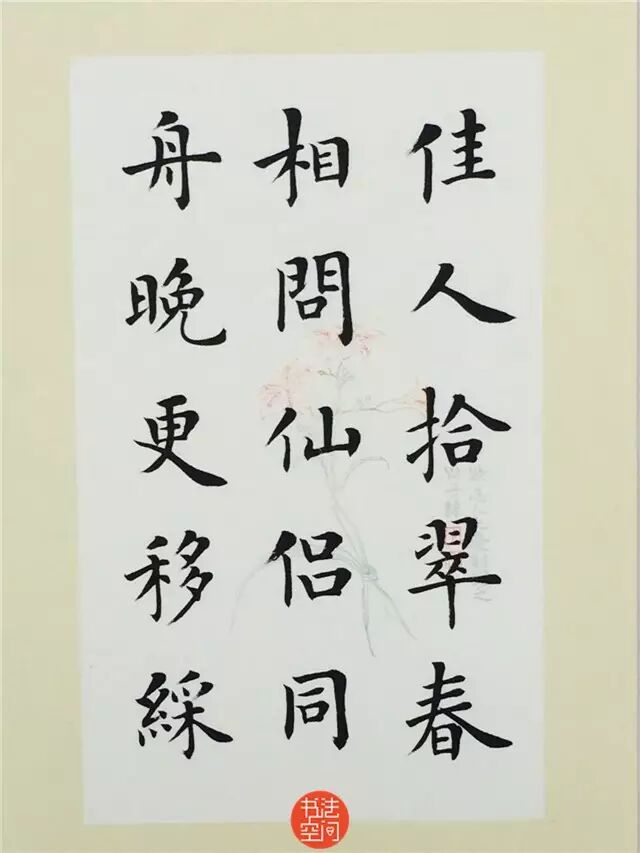 佳人拾翠春
相問仙侶同
舟晚更移綵
书法
空间